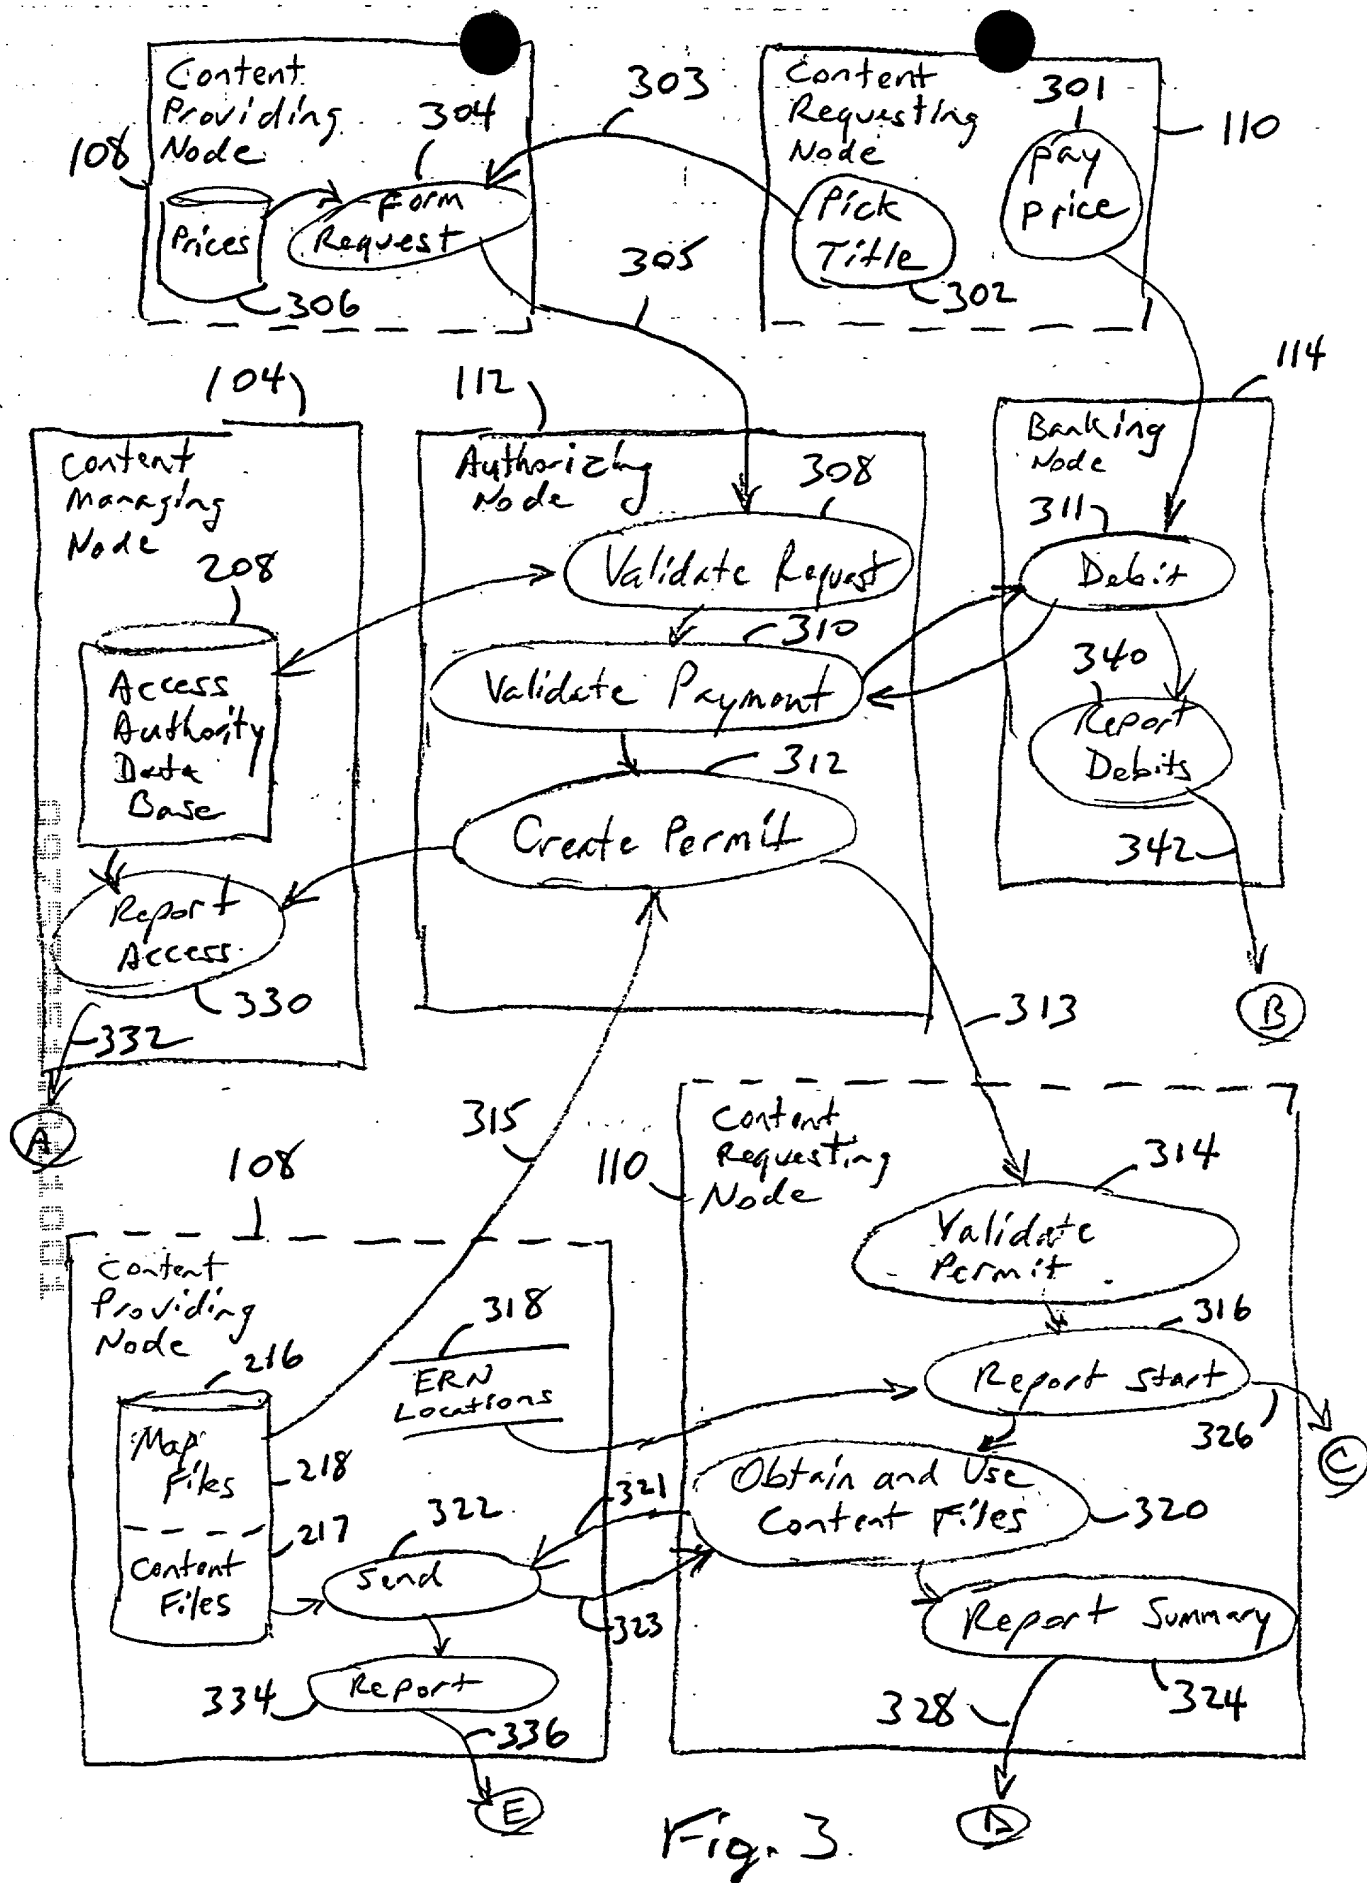 Content
Providing
Node
108
304
303
Form
Request
Prices
306
305
Content
Requesting
Node
301
110
pay
price
Pick
Title
302
104
112
114
Content
Managing
Node
208
Access
Authority
Data
Base
Report
Access
330
332
A
Authorizing
Node
308
Validate Request
310
Validate Payment
312
Create Permit
Banking
Node
311
Debit
340
Report
Debits
342
B
313
315
108
Content
Providing
Node
216
Map
Files
218
217
Content
Files
318
ERN
Locations
322
Send
321
323
334
Report
336
E
110
Content
Requesting
Node
314
Validate
Permit
316
Report Start
326
C
Obtain and Use
Content Files
320
Report Summary
324
328
D
Fig. 3